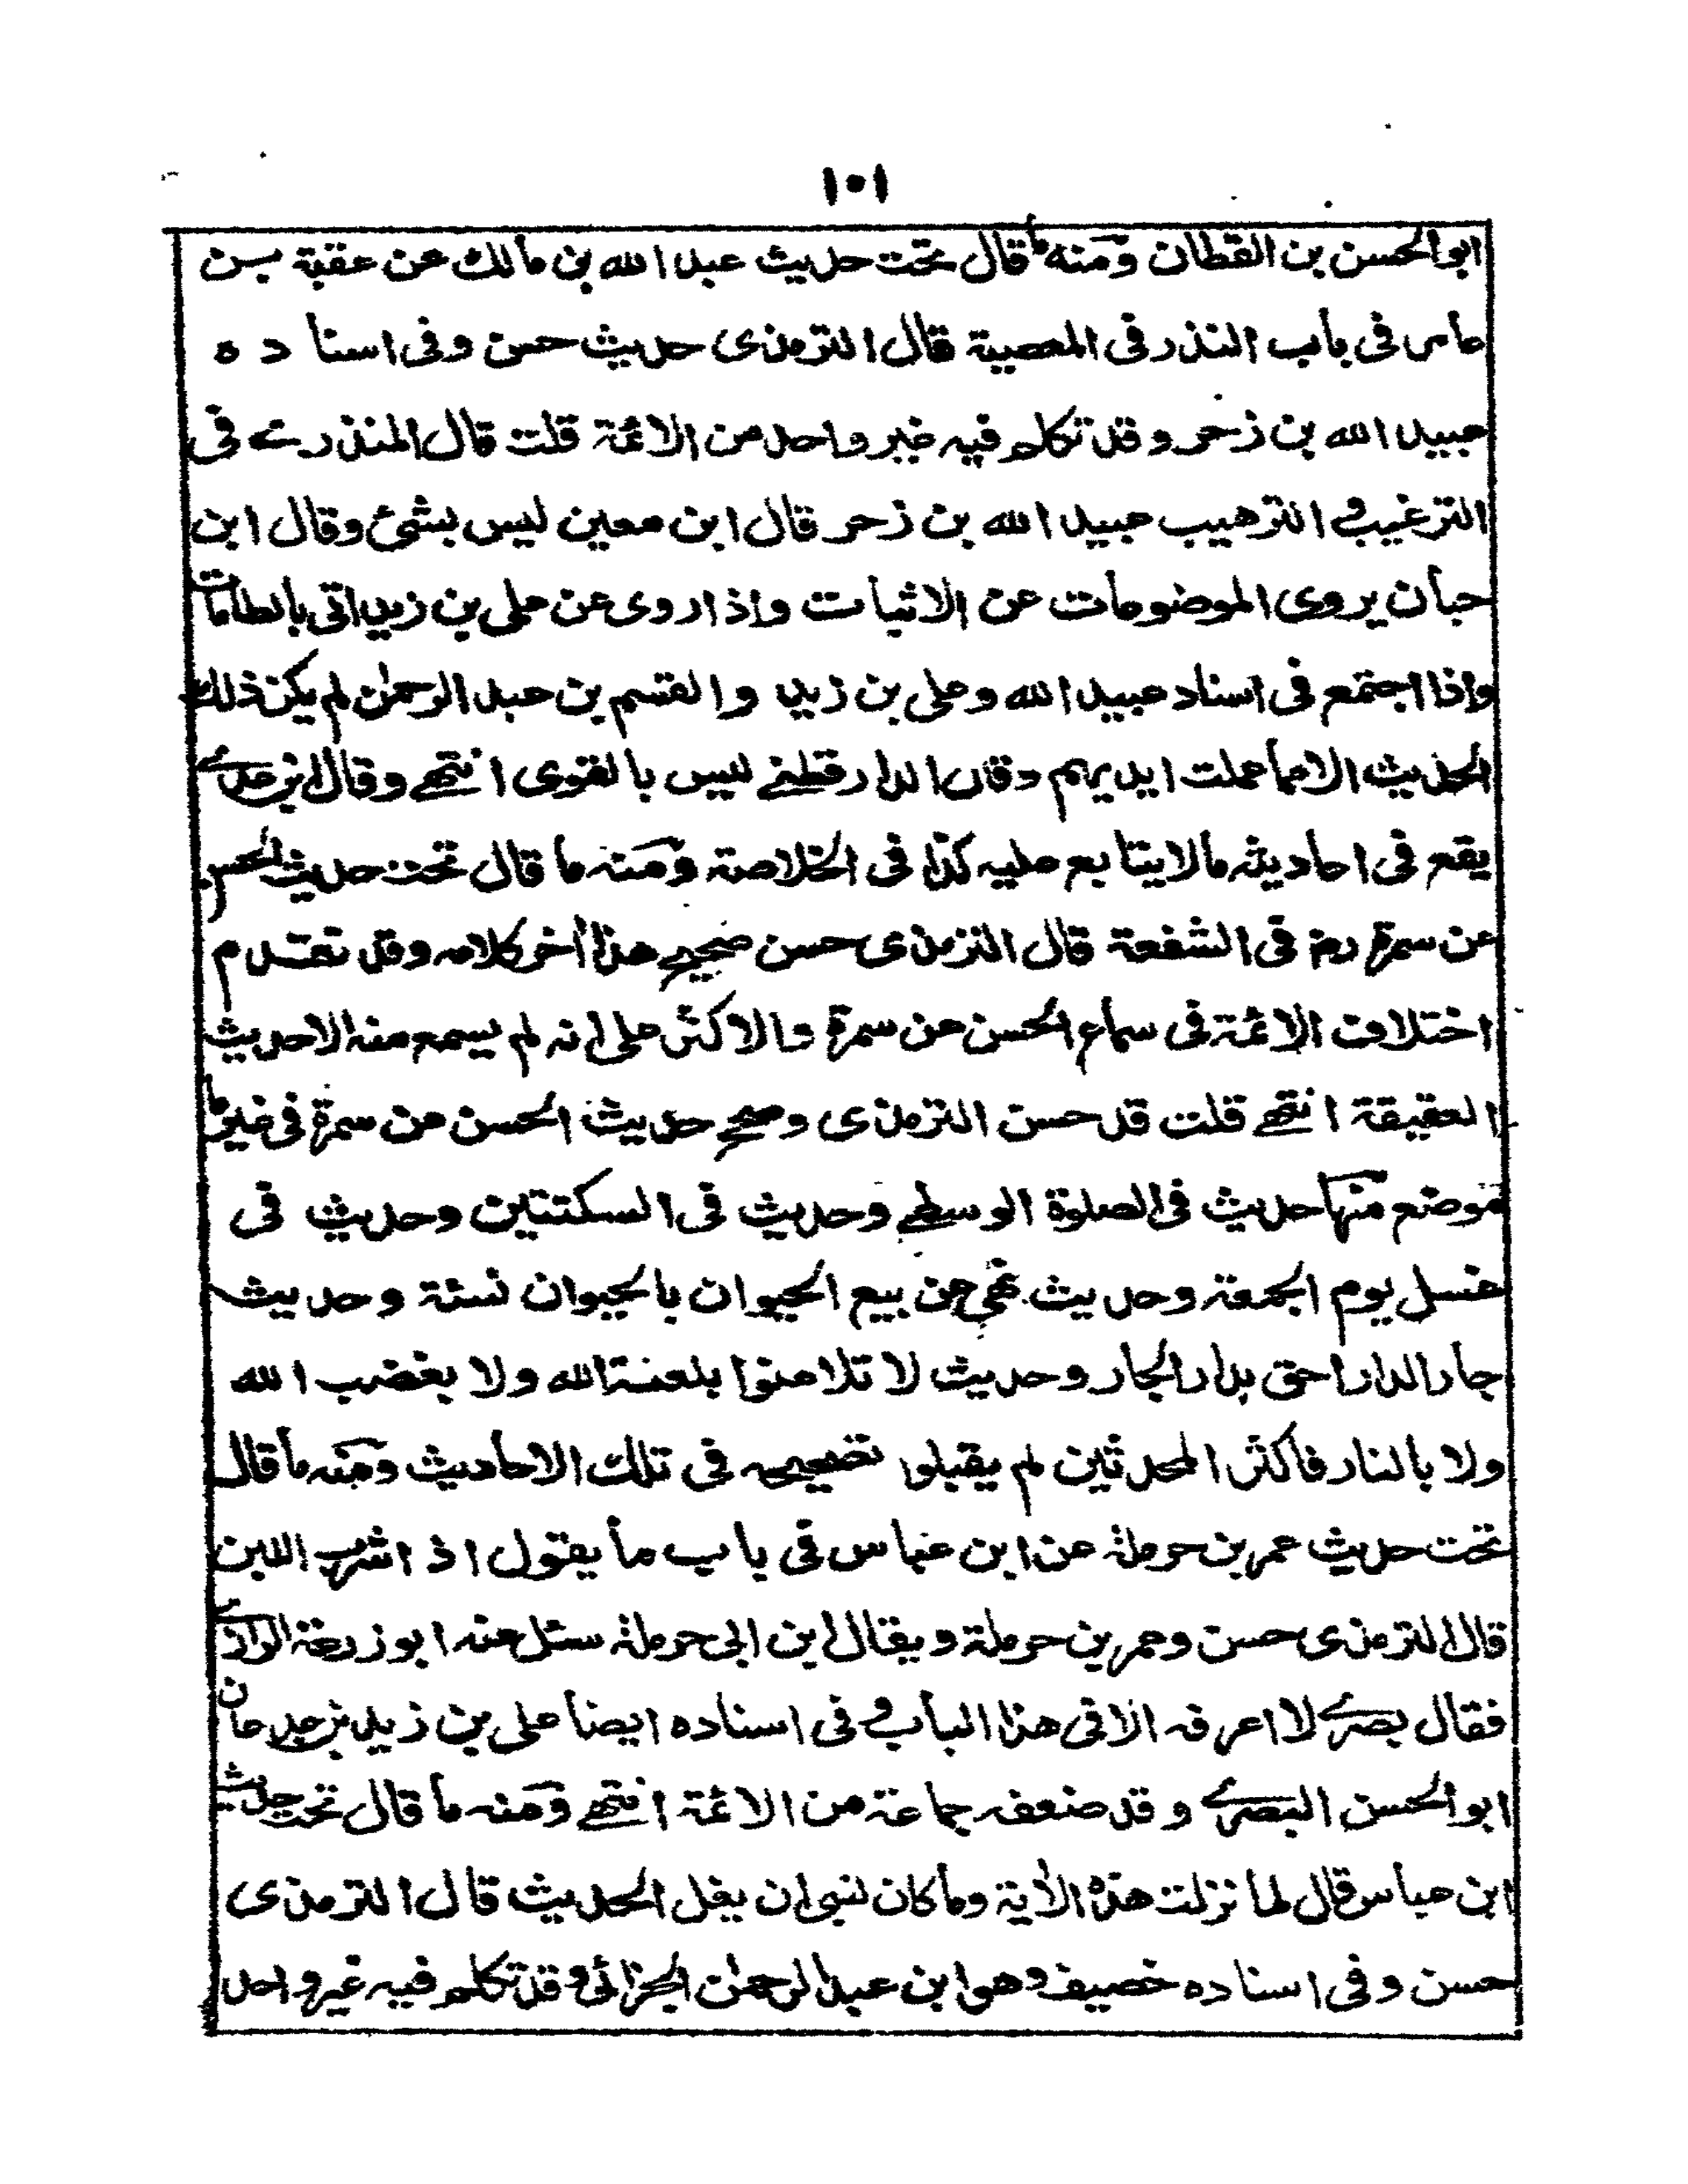 ١٠١
ابوالحسن بن القطان ومنه ما قال تحت حديث عبد الله بن مالك عن عقبة بن
عامر فى باب النذر فى المعصية قال الترمذى حديث حسن وفى اسناده
عبيد الله بن زحر وقد تكلم فيه غير واحد من الائمة قلت قال المنذرى فى
الترغيب والترهيب عبيد الله بن زحر قال ابن معين ليس بشئ وقال ابن
حبان يروى الموضوعات عن الاثبات واذا روى عن على بن زيد اتى بالطامات
واذا اجتمع فى اسناد عبيد الله وعلى بن زيد والقسم بن عبد الرحمٰن لم يكن ذلك
الحديث الا مما عملت ايديهم وقال الدارقطنى ليس بالقوى انتهى وقال ابن عدى
يقع فى احاديثه مالا يتابع عليه كذا فى الخلاصة ومنه ما قال تحت حديث الحسن
عن سمرة رض فى الشفعة قال الترمذى حسن صحيح هذا أخر كلامه وقد تقدم
اختلاف الائمة فى سماع الحسن عن سمرة والاكثر على انه لم يسمع منه الا حديث
العقيقة انتهى قلت قد حسن الترمذى وصحح حديث الحسن عن سمرة فى غير ما
موضع منها حديث فى الصلوة الوسطى وحديث فى السكتتين وحديث فى
غسل يوم الجمعة وحديث نهى عن بيع الحيوان بالحيوان نسئة وحديث
جار الدار احق بدار الجار وحديث لا تلاعنوا بلعنة الله ولا بغضب الله
ولا بالنار فاكثر المحدثين لم يقبلوا تصحيحه فى تلك الاحاديث ومنه ما قال
تحت حديث عمر بن حرملة عن ابن عباس فى باب ما يقول اذا شرب اللبن
قال الترمذى حسن وعمر بن حرملة ويقال ابن ابى حرملة سئل عنه ابو زرعة الرازى
فقال بصرى لا اعرفه الا فى هذا الباب وفى اسناده ايضا على بن زيد بن جدعان
ابو الحسن البصرى وقد ضعفه جماعة من الائمة انتهى ومنه ما قال تحت حديث
ابن عباس قال لما نزلت هذه الأية وما كان لنبى ان يغل الحديث قال الترمذى
حسن وفى اسناده خصيف وهو ابن عبد الرحمٰن الجزائى وقد تكلم فيه غير واحد